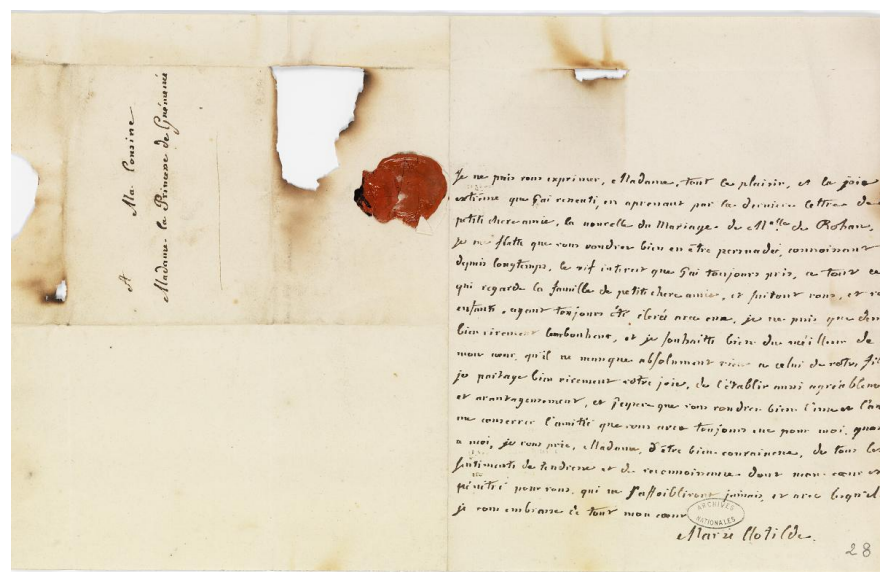 A Ma Cousine
Madame la Princesse de Guémené
Je ne puis vous exprimer, Madame, tout le plaisir, et la joie
extrême que j'ai resenti, en aprenant par la derniere lettre de
petite chere amie, la nouvelle du Mariage de Melle de Rohan,
je me flatte que vous voudrez bien en être persuadée, connoissant
depuis longtemps, le vif interest que j'ai toujours pris, a tout ce
qui regarde la famille de petite chere amie, et surtout vous, et
enfants, ayant toujours été élevée avec eux, je ne puis que
bien vivement bonheur, et je souhaitte bien du meilleur de
mon cœur, qu'il ne manque absolument rien a celui de votre
je partage bien vivement votre joie, de l'établir aussi
et avantageusement, et j'espere que vous voudrez bien
me conserver l'amitié que vous avez toujours eue pour moi,
a moi, je vous prie, Madame, d'être bien convaincue, de tous les
sentiments de tendresse et de reconnoissance dont mon cœur est
pénétré pour vous, qui ne s'affoibliront jamais, et avec lequel
je vous embrasse de tout mon cœur
ARCHIVES NATIONALES
Marie Clotilde.
28